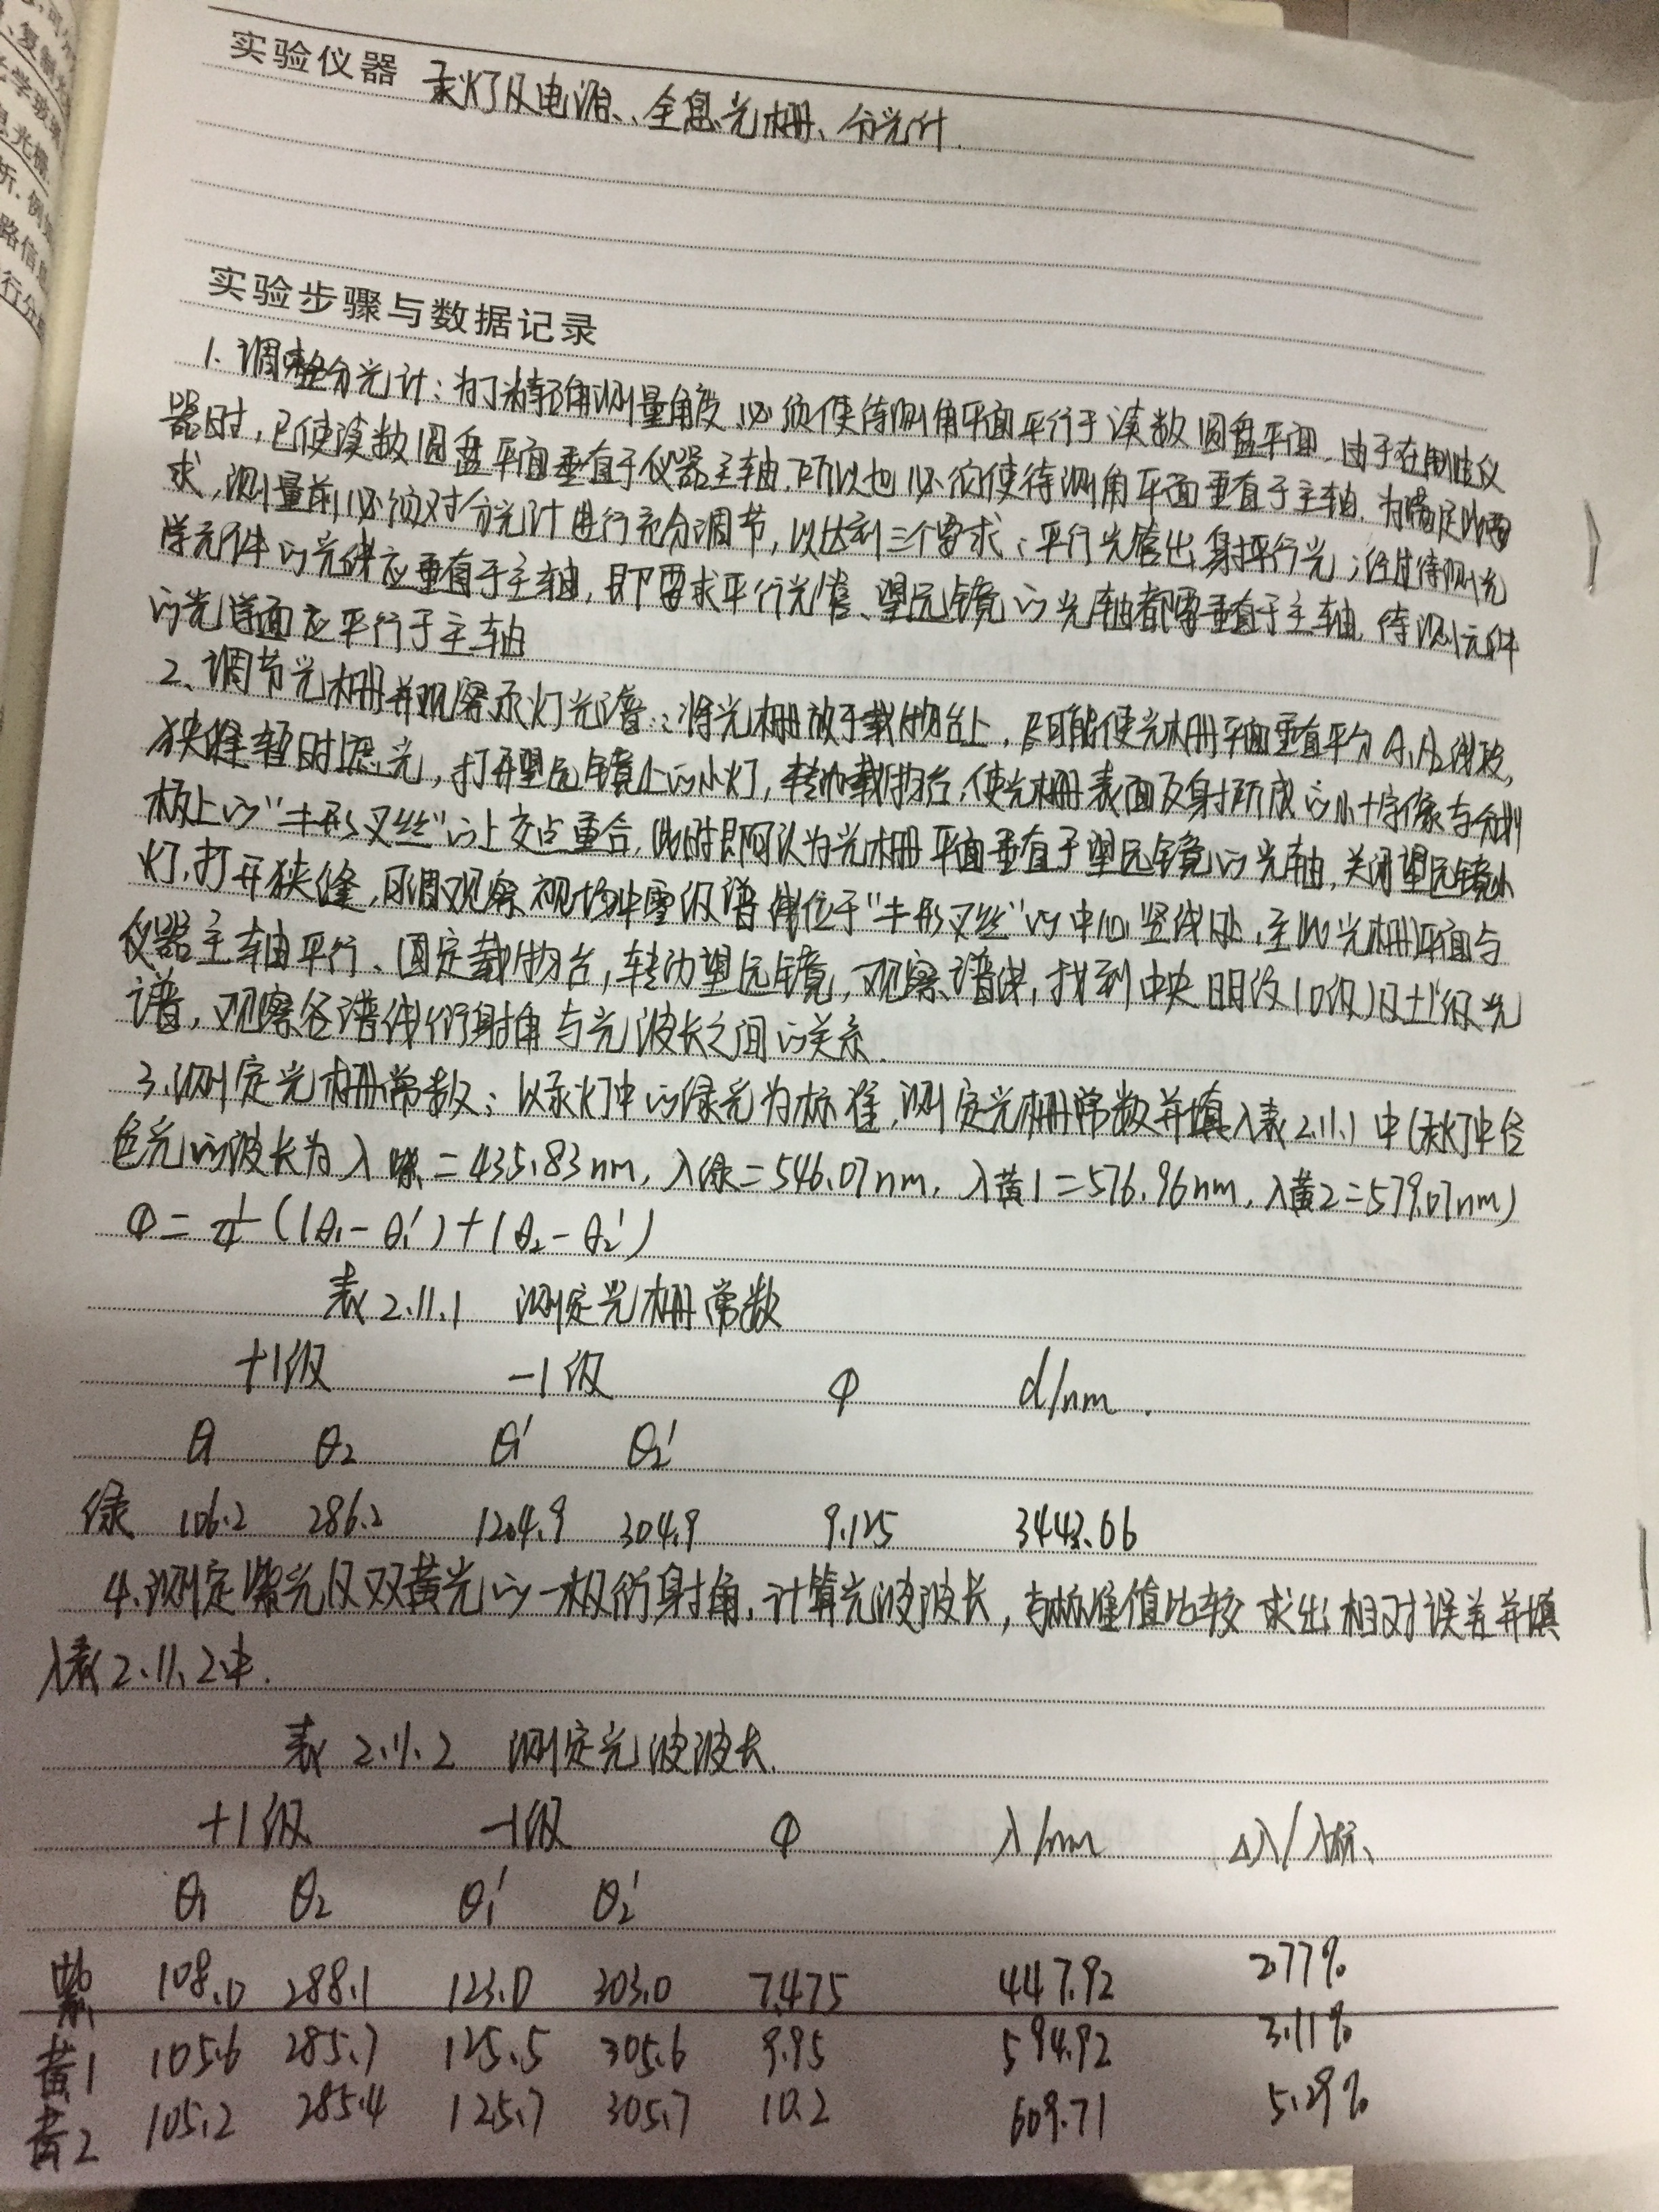 实验仪器 汞灯及电源、全息光栅、分光计.
实验步骤与数据记录
1. 调整分光计：为了精确测量角度，必须使待测角平面平行于读数圆盘平面，由于在制造仪
器时，已使读数圆盘平面垂直于仪器主轴，所以也必须使待测角平面垂直于主轴，为满足此要
求，测量前必须对分光计进行充分调节，以达到三个要求：平行光管出射平行光；经过待测光
学元件的光线应垂直于主轴，即要求平行光管、望远镜的光轴都要垂直于主轴，待测元件
的光学面应平行于主轴
2、调节光栅并观察汞灯光谱：将光栅放于载物台上，尽可能使光栅平面垂直平分A₁A₂线段，
狭缝暂时遮光，打开望远镜上的小灯，转动载物台，使光栅表面反射所成的小十字像与分划
板上的"丰形叉丝"的上交点重合，此时即可认为光栅平面垂直于望远镜的光轴，关闭望远镜小
灯，打开狭缝，观察视场中零级谱线位于"丰形叉丝"的中间竖线处，至此光栅平面与
仪器主轴平行、固定载物台，转动望远镜，观察谱线，找到中央明纹(0级)及±1级光
谱，观察各谱线衍射角与光波长之间的关系.
3.测定光栅常数；以汞灯中的绿光为标准，测定光栅常数并填入表2.11.1中(汞灯中各
色光的波长为λ紫=435.83nm，λ绿=546.07nm，λ黄1=576.96nm，λ黄2=579.07nm)
φ=¼(|θ₁-θ₁')+|θ₂-θ₂')
表2.11.1 测定光栅常数
+1级 -1级 φ d/nm.
θ₁ θ₂ θ₁' θ₂'
绿 106.2 286.2 304.9 9.125
4.测定紫光及双黄光的一级衍射角，计算光波波长，与标准值比较求出相对误差并填
入表2.11.2中.
表2.11.2 测定光波波长.
+1级 -1级 φ λ/nm Δλ/λ标
θ₁ θ₂ θ₁' θ₂'
紫 108.0 288.1 123.0 303.0 7.475 447.92 2.77%
黄1 105.6 285.7 125.5 305.6 9.95 594.92 3.11%
黄2 105.2 285.4 125.7 305.7 10.2 609.71 5.29%